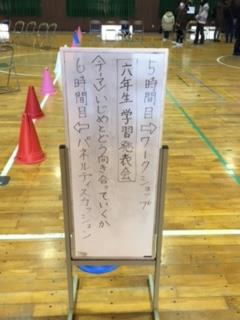 5時間目⇨ワークショップ
六年生 学習発表会
〈テーマ〉いじめとどう向き合っていくか
6時間目⇦パネルディスカッション